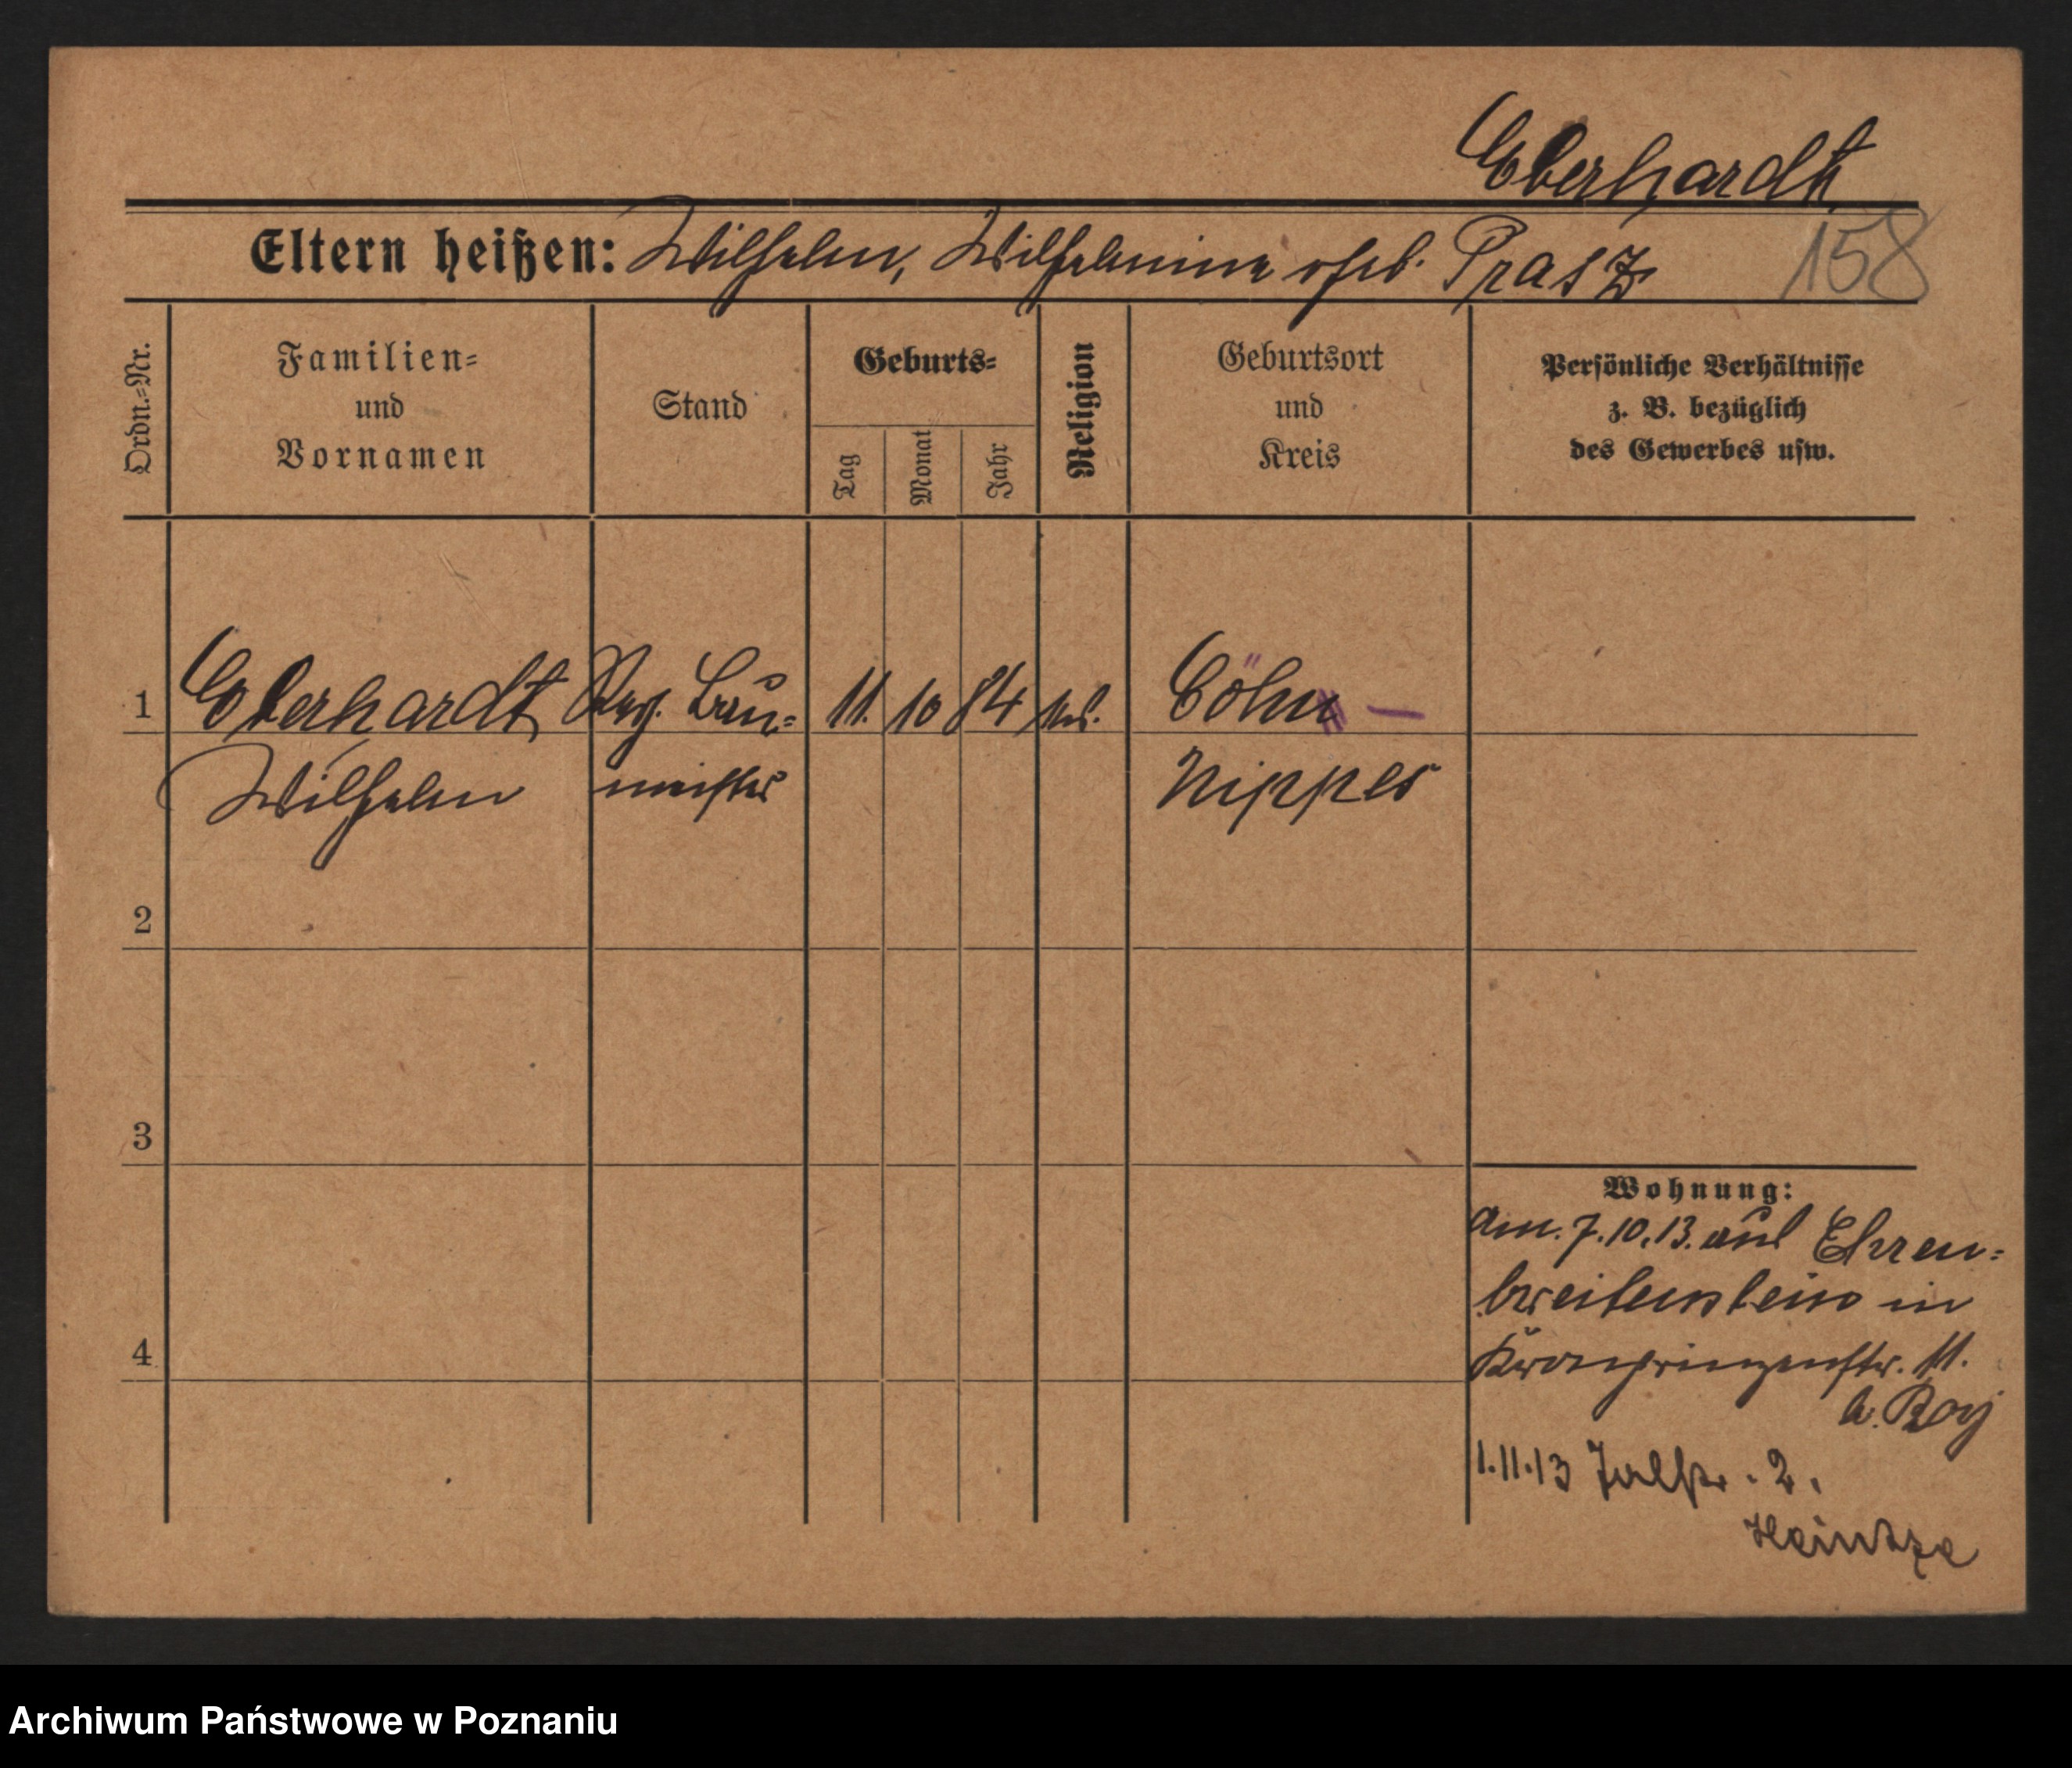 Eberhardt
Eltern heißen: Wilhelm, Wilhelmine geb. Prasz
158
Ordn.=Nr.
Familien=
und
Vornamen
Stand
Geburts=
Tag
Monat
Jahr
Religion
Geburtsort
und
Kreis
Persönliche Verhältnisse
z. B. bezüglich
des Gewerbes usw.
1 Eberhardt Reg. Bau= 11. 10 84 Cöln –
Wilhelm meister Nippes
2
3
4
Wohnung:
am. 7.10.13. aus Ehren=
breitenstein in
Kronprinzenstr. 11.
b. Roy
1.11.13 Talstr. 2.
Heintze
Archiwum Państwowe w Poznaniu